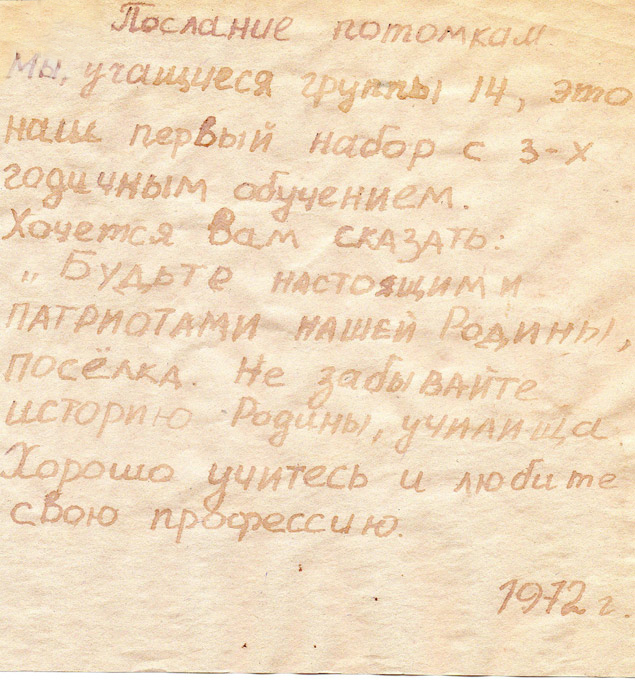 Послание потомкам
Мы, учащиеся группы 14, это
наш первый набор с 3-х
годичным обучением.
Хочется Вам сказать:
„Будьте настоящими
патриотами нашей Родины,
посёлка. Не забывайте
историю Родины, училища.
Хорошо учитесь и любите
свою профессию.
1972 г.